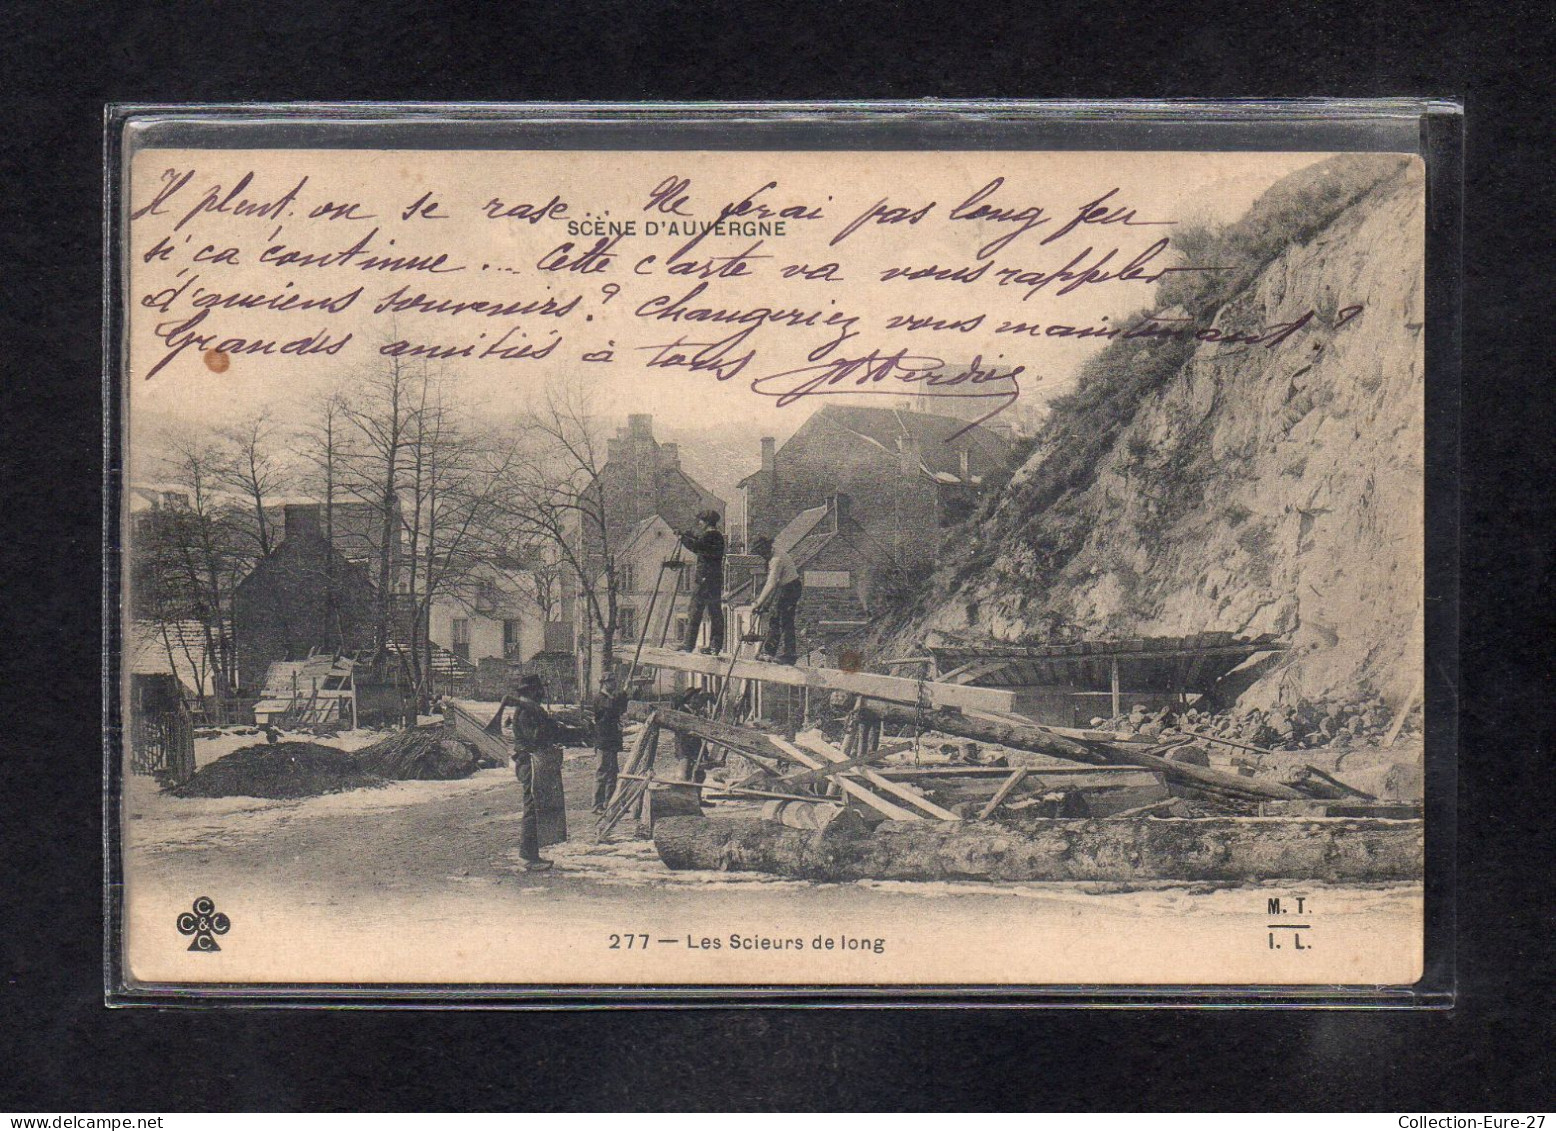 Il pleut, on se rase... Ne ferai pas long feu
SCÈNE D'AUVERGNE
si ca continue ... Cette carte va vous rappeler
d'anciens souvenirs? Changeriez vous maintenant?
Grandes amitiés à tous
C
C & C C
C
277 — Les Scieurs de long
M. T.
I. L.
Collection-Eure-27